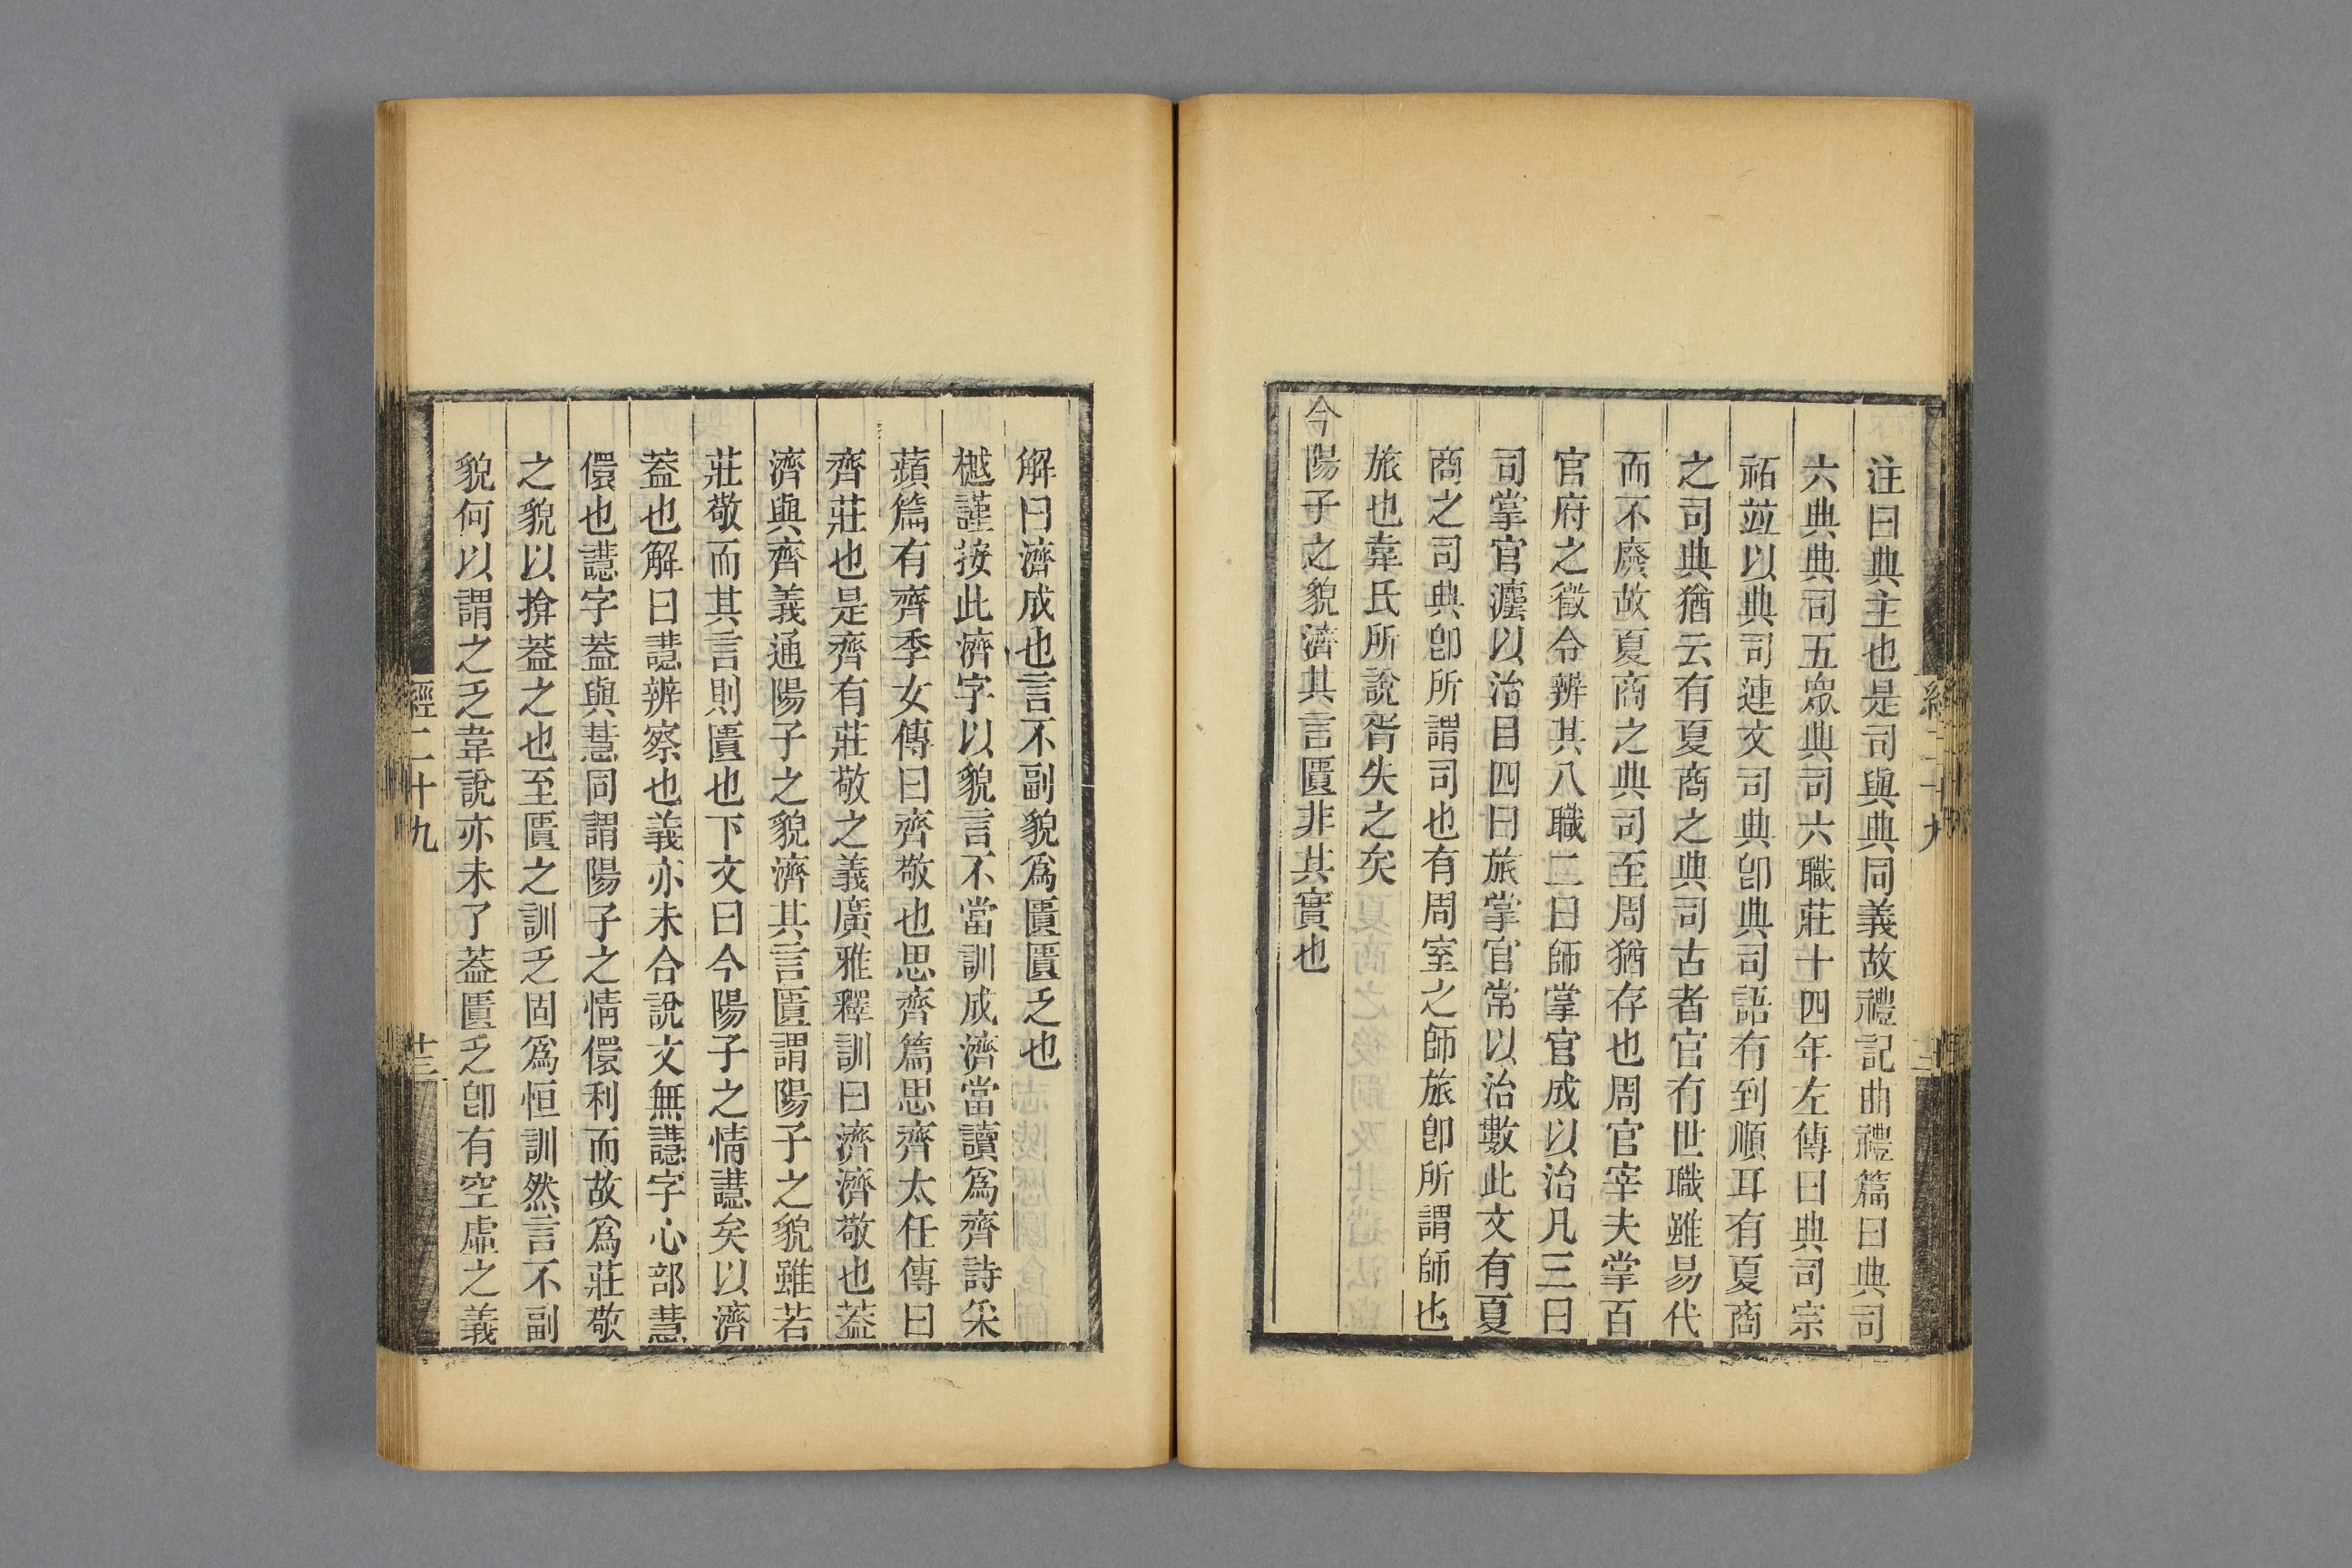 注曰典主也是司與典同義故禮記曲禮篇曰典司
六典典司五眾典司六職莊十四年左傳曰典司宗
祏竝以典司連文司典卽典司語有到順耳有夏商
之司典猶云有夏商之典司古者官有世職雖易代
而不廢故夏商之典司至周猶存也周官宰夫掌百
官府之徵令辨其八職二曰師掌官成以治凡三曰
司掌官灋以治目四曰旅掌官常以治數此文有夏
商之司典卽所謂司也有周室之師旅卽所謂師也
旅也韋氏所說胥失之矣
今陽子之貌濟其言匱非其實也
解曰濟成也言不副貌爲匱匱乏也
樾謹按此濟字以貌言不當訓成濟當讀爲齊詩采
蘋篇有齊季女傳曰齊敬也思齊篇思齊太任傳曰
齊莊也是齊有莊敬之義廣雅釋訓曰濟濟敬也蓋
濟與齊義通陽子之貌濟其言匱謂陽子之貌雖若
莊敬而其言則匱也下文曰今陽子之情譿矣以濟
蓋也解曰譿辨察也義亦未合說文無譿字心部慧
儇也譿字蓋與慧同謂陽子之情儇利而故爲莊敬
之貌以揜蓋之也至匱之訓乏固爲恒訓然言不副
貌何以謂之乏韋說亦未了蓋匱乏卽有空虛之義
經二十九